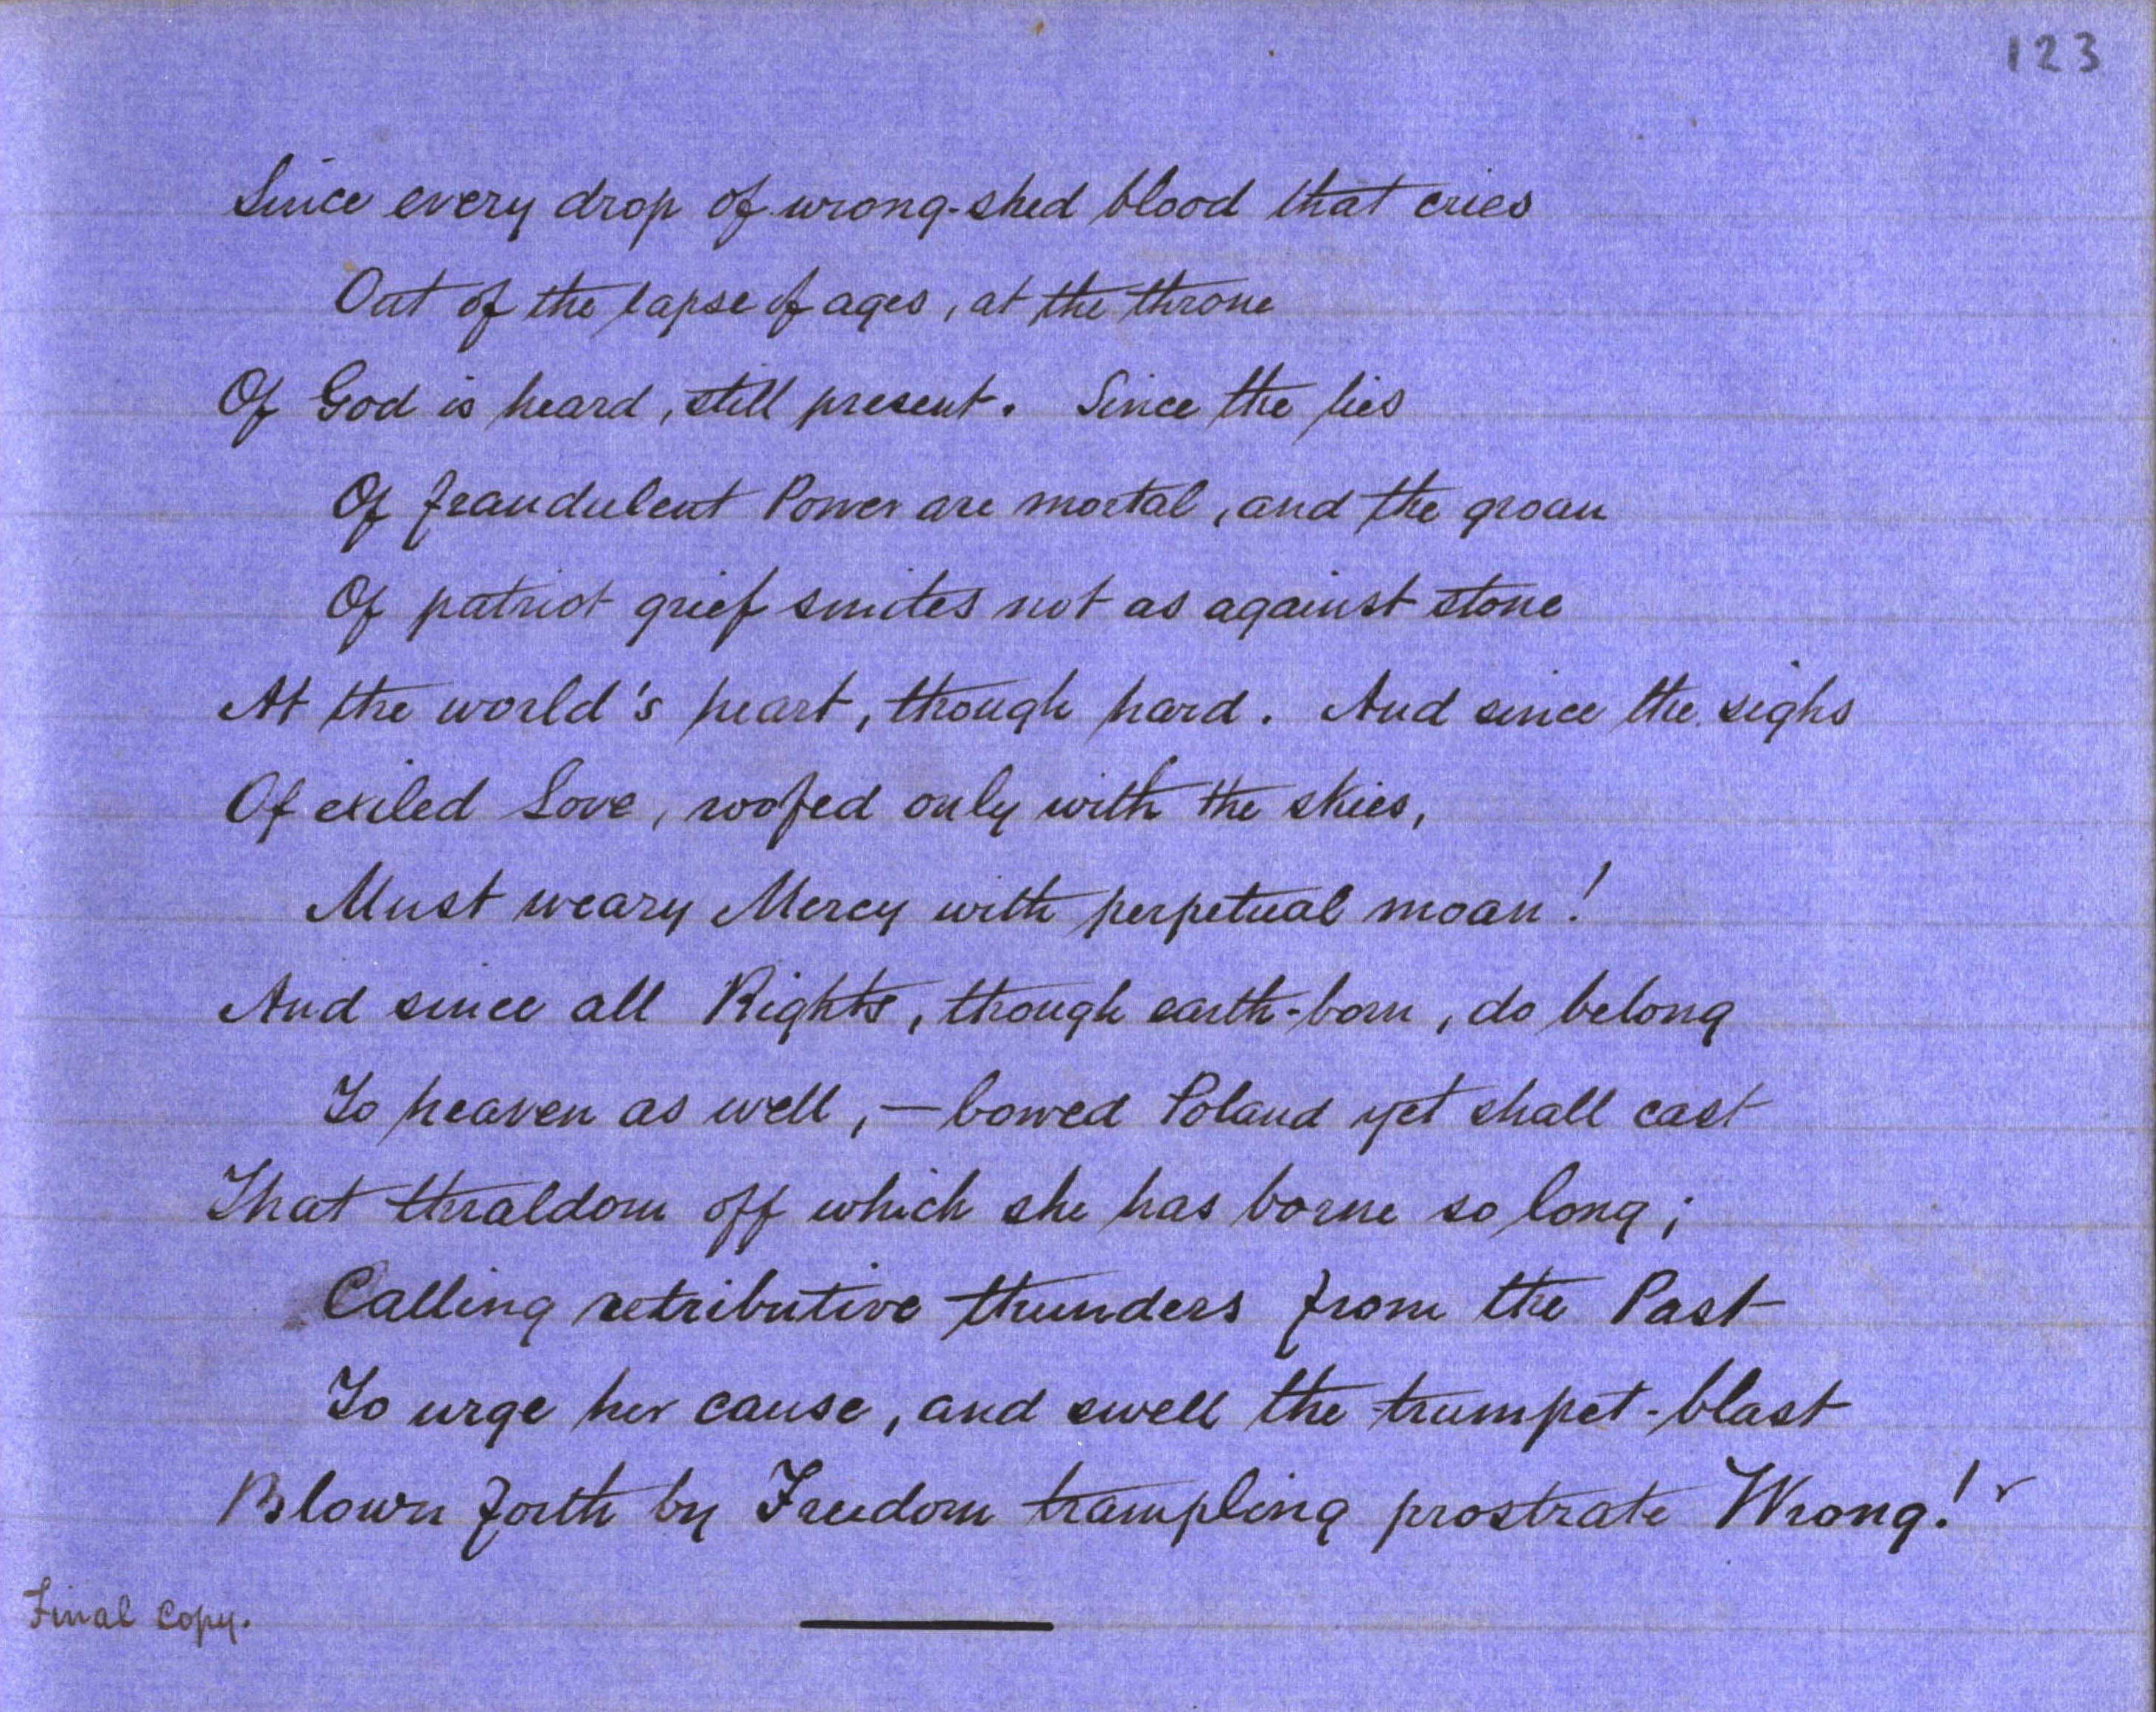 123
Since every drop of wrong-shed blood that cries
Out of the lapse of ages, at the throne
Of God is heard, still present. Since the lies
Of fraudulent Power are mortal, and the groan
Of patriot grief smites not as against stone
At the world's heart, though hard. And since the sighs
Of exiled Love, roofed only with the skies,
Must weary Mercy with perpetual moan!
And since all Rights, though earth-born, do belong
To heaven as well, — bowed Poland yet shall cast
That thraldom off which she has borne so long;
Calling retributive thunders from the Past
To urge her cause, and swell the trumpet-blast
Blown forth by Freedom trampling prostrate Wrong!
Final Copy.